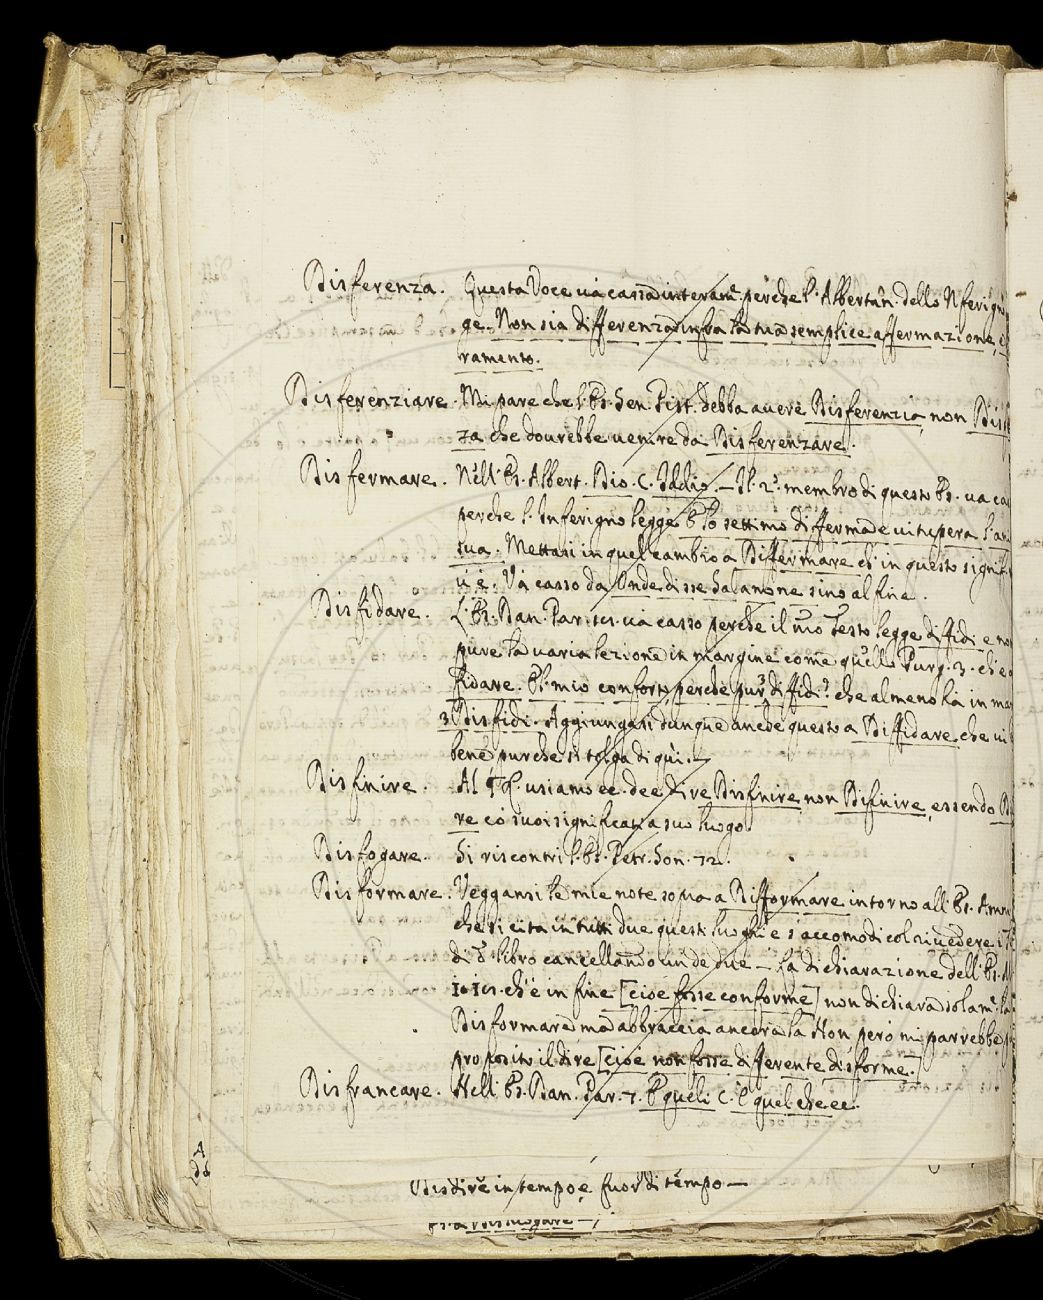 Disferenza. Questa Voce va cassa interam.e perche l'Albertan. dello Nferigno
ge. Non sia differenza infra la tua semplice affermazione, e
ramento.
Disferenziare. Mi pare che l'Es. Sen. Pist. debba avere Disferenzia, non Disf
za che dovrebbe venire da Disferenzare.
Disfermare. Nell'Es. Albert. Dio. C. Iddio. - Il 2.º membro di questo Es. va ca
perche l'Inferigno legge E lo settimo differma e vitupera l'a
sua. Mettasi in quel cambio a Differmare ch' in questo signif
v'è. Và casso da Onde disse Salamone sino al fine.
Disfidare. L'Es. Dan. Par. va casso perche il mio Testo legge diffidi e no
pure la varia lezione in margine come quello Purg. 3. ch'e
fidare. El mio conforto, perche pur diffidi? che almeno ha in mar
3 Disfidi. Aggiungasi dunque anche questo a Diffidare, che vi
bene purche si tolga di qui.
Disfinire. Al usiamo ec. dee dire Disfinire, non Difinire, essendo D
re co suoi significati a suo luogo
Disfogare. Si riscontri l'Es. Petr. Son. 72.
Disformare: Veggansi le mie note sopra a Difformare intorno all'Es. Amm
che si cita in tutti due questi luoghi e s'accomodi col rivedere i
di d.º libro cancellando un de due - La dichiarazione dell'Es.
ch'è in fine [cioe fosse conforme] non dichiara solam.e la
Disformare, ma abbraccia ancora la Non però mi parrebbe
proposito il dire [cioè non fosse differente disforme.]
Disfrancare. Nell'Es. Dan. Par. 7. E queli C. E quel che ec.
A
Disdire in tempo, e fuor di tempo -